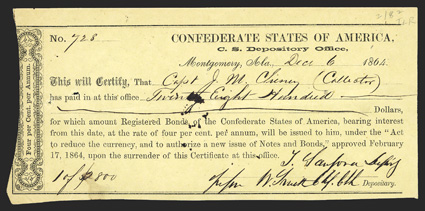 CONFEDERATE STATES OF AMERICA,
No. 728
C. S. Depository Office,
Montgomery, Ala, Dec 6 1864.
This will Certify, That Capt J. M. Cheney (Collector)
has paid in at this office Twenty Eight Hundred
Dollars,
for which amount Registered Bonds, of the Confederate States of America, bearing interest
from this date, at the rate of four per cent. per annum, will be issued to him, under the "Act
to reduce the currency, and to authorize a new issue of Notes and Bonds," approved February
17, 1864, upon the surrender of this Certificate at this office.
Depositary.
Four per Cent. per Annum.